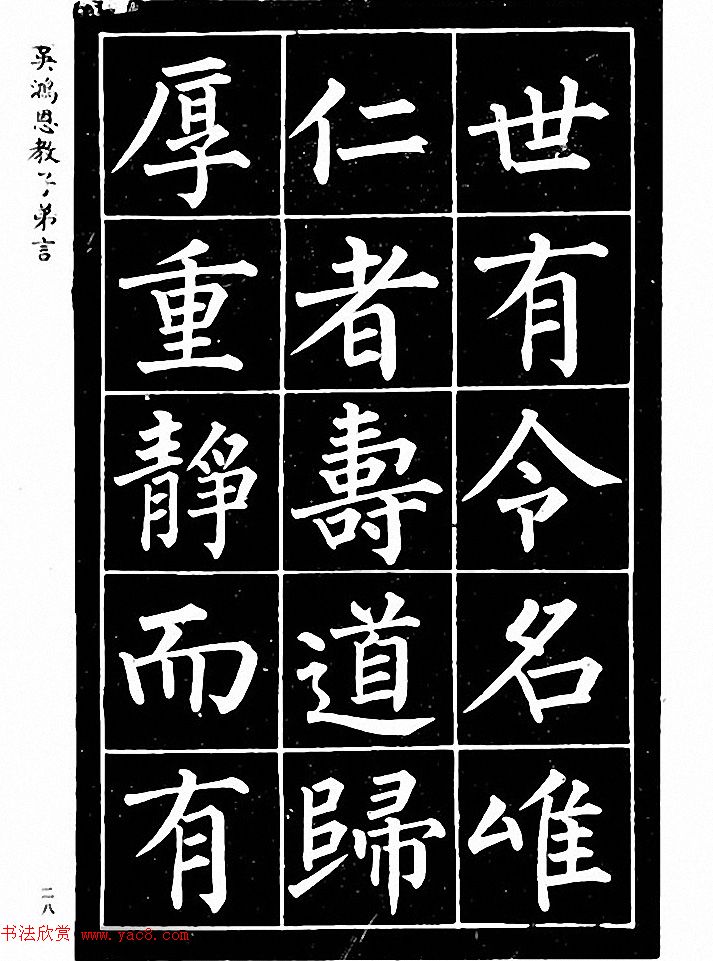 世有令名唯
仁者壽道歸
厚重靜而有
吳鴻恩教子弟言
二八
书法欣赏 www.yac8.com